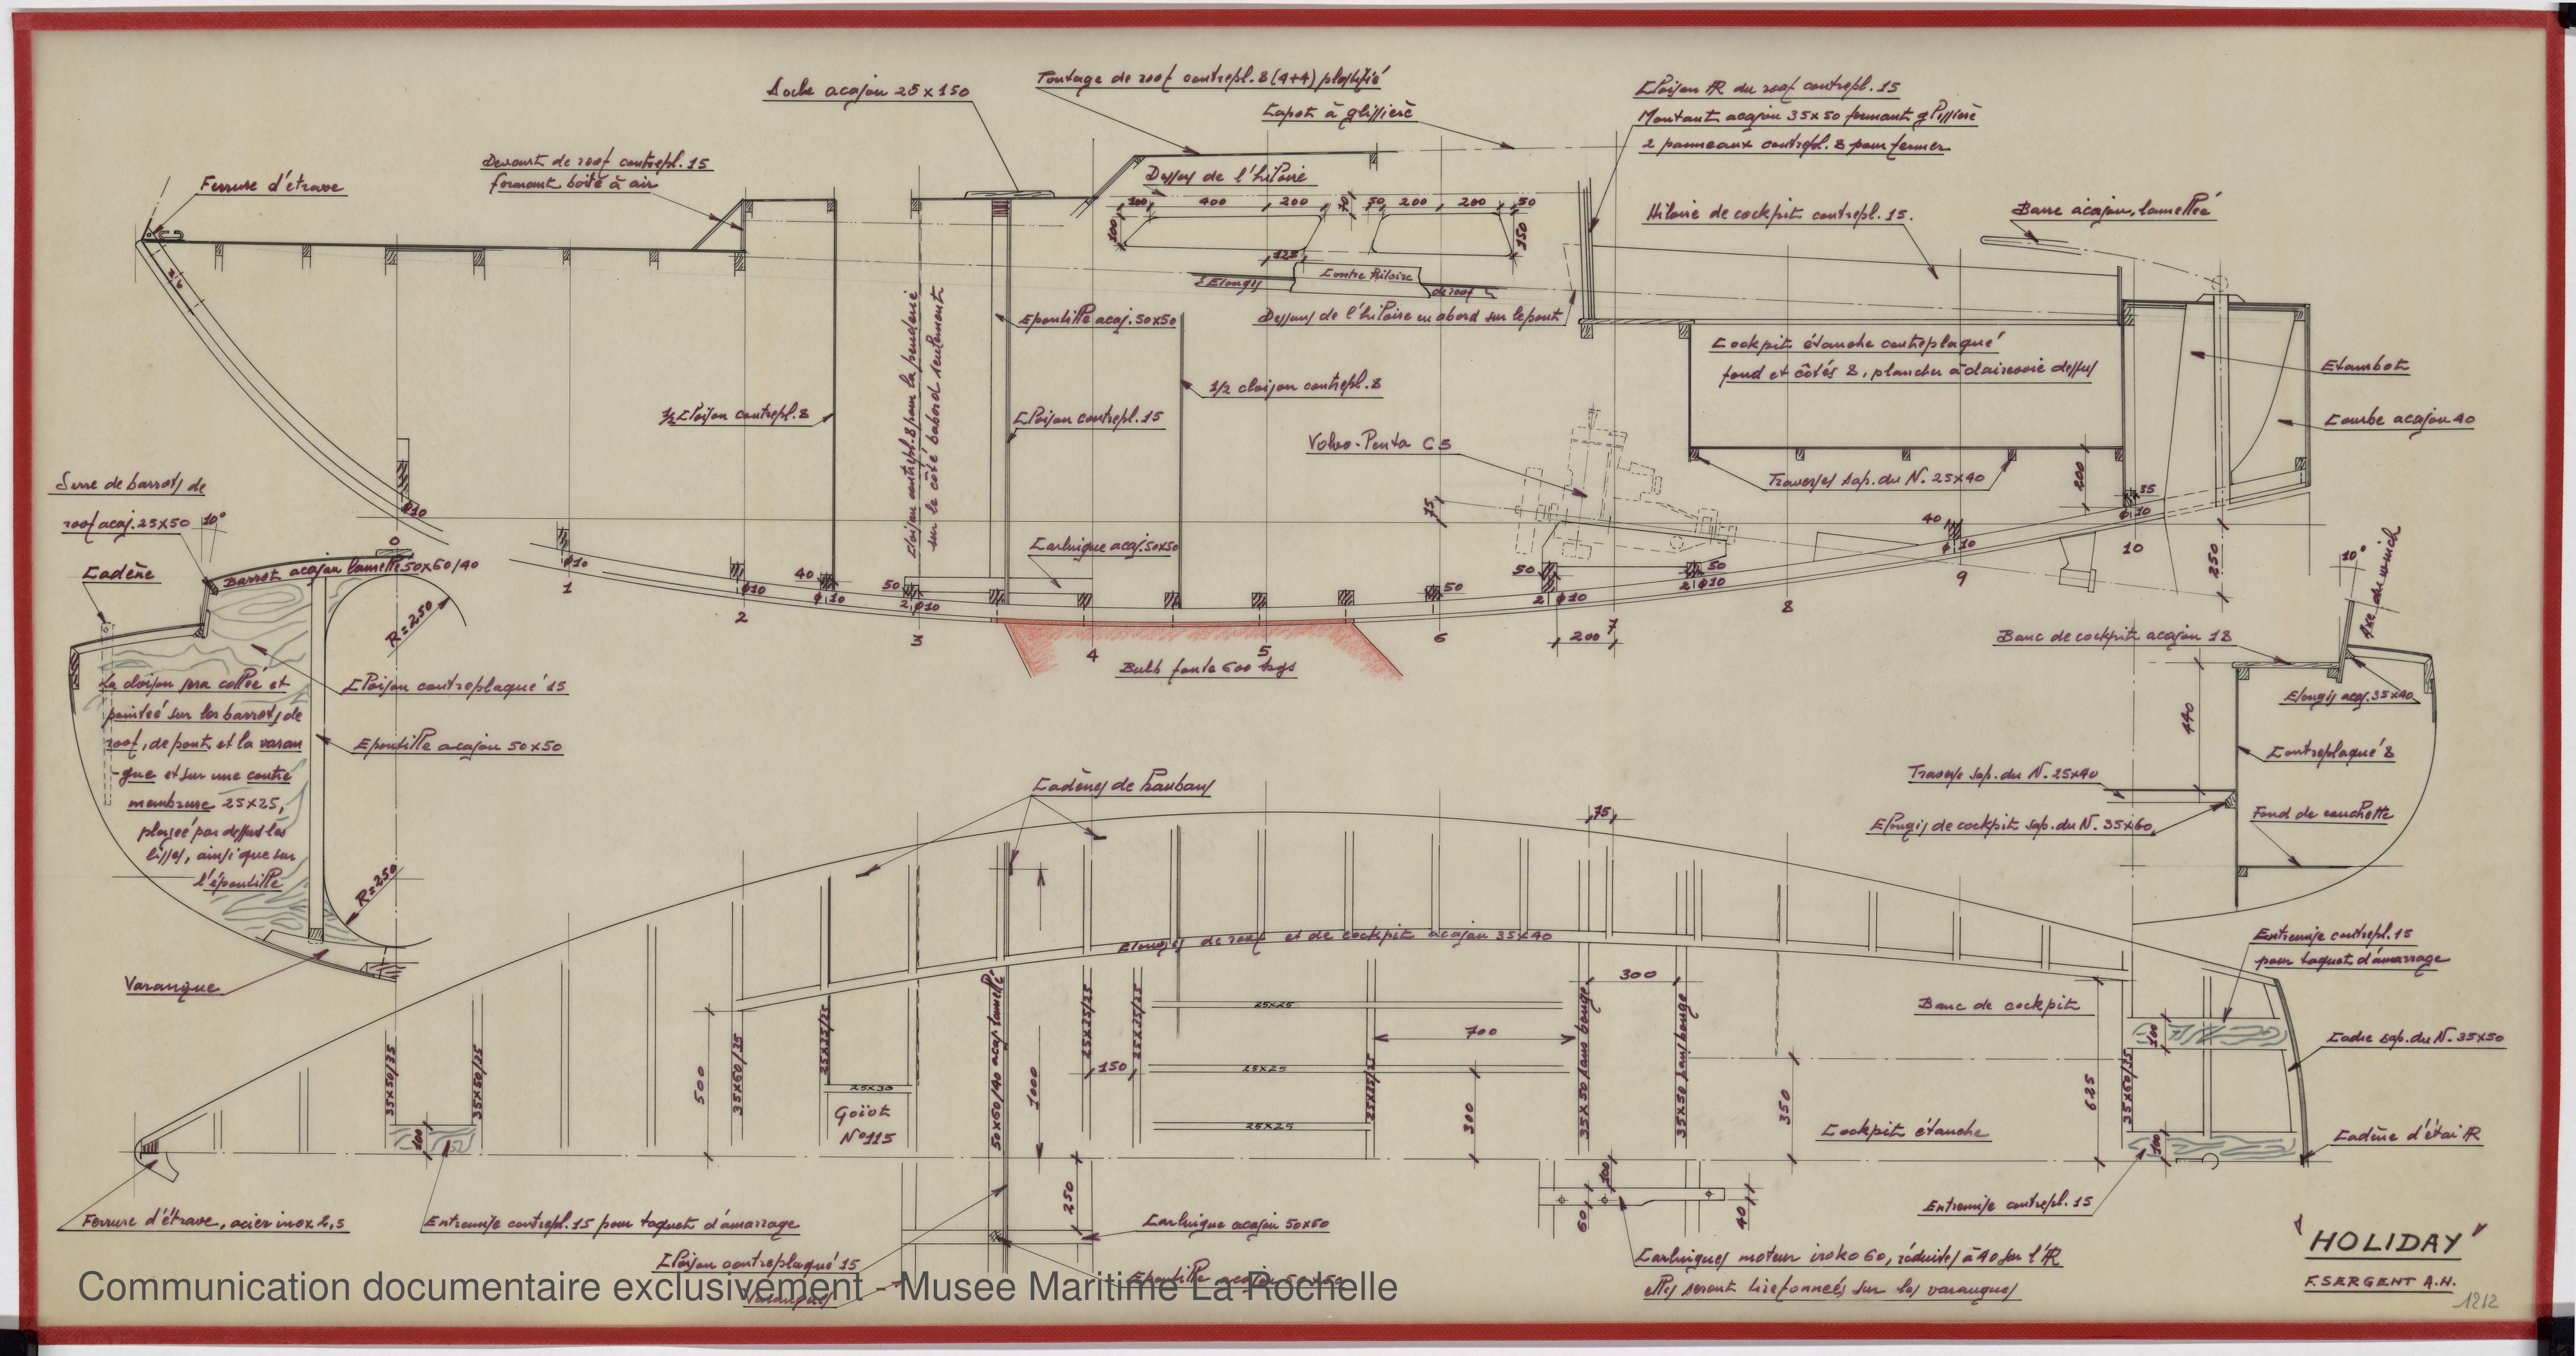 Socle acajou 25x150
Pontage de roof contrepl. 8 (4+4) plastifié
Capot à glissière
Cloison AR du roof contrepl. 15
Montant acajou 35x50 formant glissière
2 panneaux contrepl. 8 pour fermer
Devant de roof contrepl. 15
formant boite à air
Ferrure d'étrave
Dessus de l'hiloire
100
400
200
50
200
200
50
100
150
125
Contre hiloire
Elongis
de roof
Dessus de l'hiloire en abord sur le pont
Hiloire de cockpit contrepl. 15.
Barre acajou, lamellée
Epontille acaj. 50x50
1/2 cloison contrepl. 8
1/2 Cloison contrepl. 8
Cloison contrepl. 8 pour la penderie
sur le côté babord seulement
Cloison contrepl. 15
Cockpit étanche contreplaqué
fond et côtés 8, plancher à clairevoie dessus
Etambot
Courbe acajou 40
Volvo-Penta C5
Traverses sap. du N. 25x40
200
75
35
φ10
Serre de barrots de
roof acaj. 25x50
10°
φ10
Carlingue acaj. 50x50
40
φ10
250
Cadène
Barrot acajou lamellé 50x60/40
0
φ10
1
φ10
2
40
φ10
50
2 φ10
3
4
5
50
6
50
2 φ10
200
7
50
2 φ10
8
9
10
Bulb fonte 600 kgs
R=250
10°
Axe du winch
Banc de cockpit acajou 18
Elongis acaj. 35x40
440
Contreplaqué 8
Traverse sap. du N. 25x40
Elongis de cockpit sap. du N. 35x60
Fond de couchette
La cloison sera collée et
pointée sur les barrots de
roof, de pont, et la varan
-gue et sur une contre
membrure 25x25,
placée par dessus les
lisses, ainsi que sur
l'épontille
Cloison contreplaqué 15
Epontille acajou 50x50
R=250
Varangue
Cadènes de haubans
75
Elongis de roof et de cockpit acajou 35x40
300
Entremise contrepl. 15
pour taquet d'amarrage
Banc de cockpit
35x50/35
35x50/35
500
35x60/35
25x35/25
25x30
Goïot
N°115
50x60/40 acaj. lamellé
1000
25x35/25
150
25x35/25
25x25
25x25
25x25
25x35/25
700
300
35x50 sans bouge
35x50 sans bouge
350
625
35x60/35
100
Cadre sap. du N. 35x50
Cockpit étanche
100
100
Cadène d'étai AR
Ferrure d'étrave, acier inox 2,5
Entremise contrepl. 15 pour taquet d'amarrage
250
Carlingue acajou 50x50
Cloison contreplaqué 15
Epontille acajou 50x50
Varangues
100
60
40
Carlingues moteur iroko 60, réduites à 40 sur l'AR
elles seront tirefonnées sur les varangues
Entremise contrepl. 15
"HOLIDAY"
F. SERGENT A.H.
1212
Communication documentaire exclusivement - Musee Maritime La Rochelle